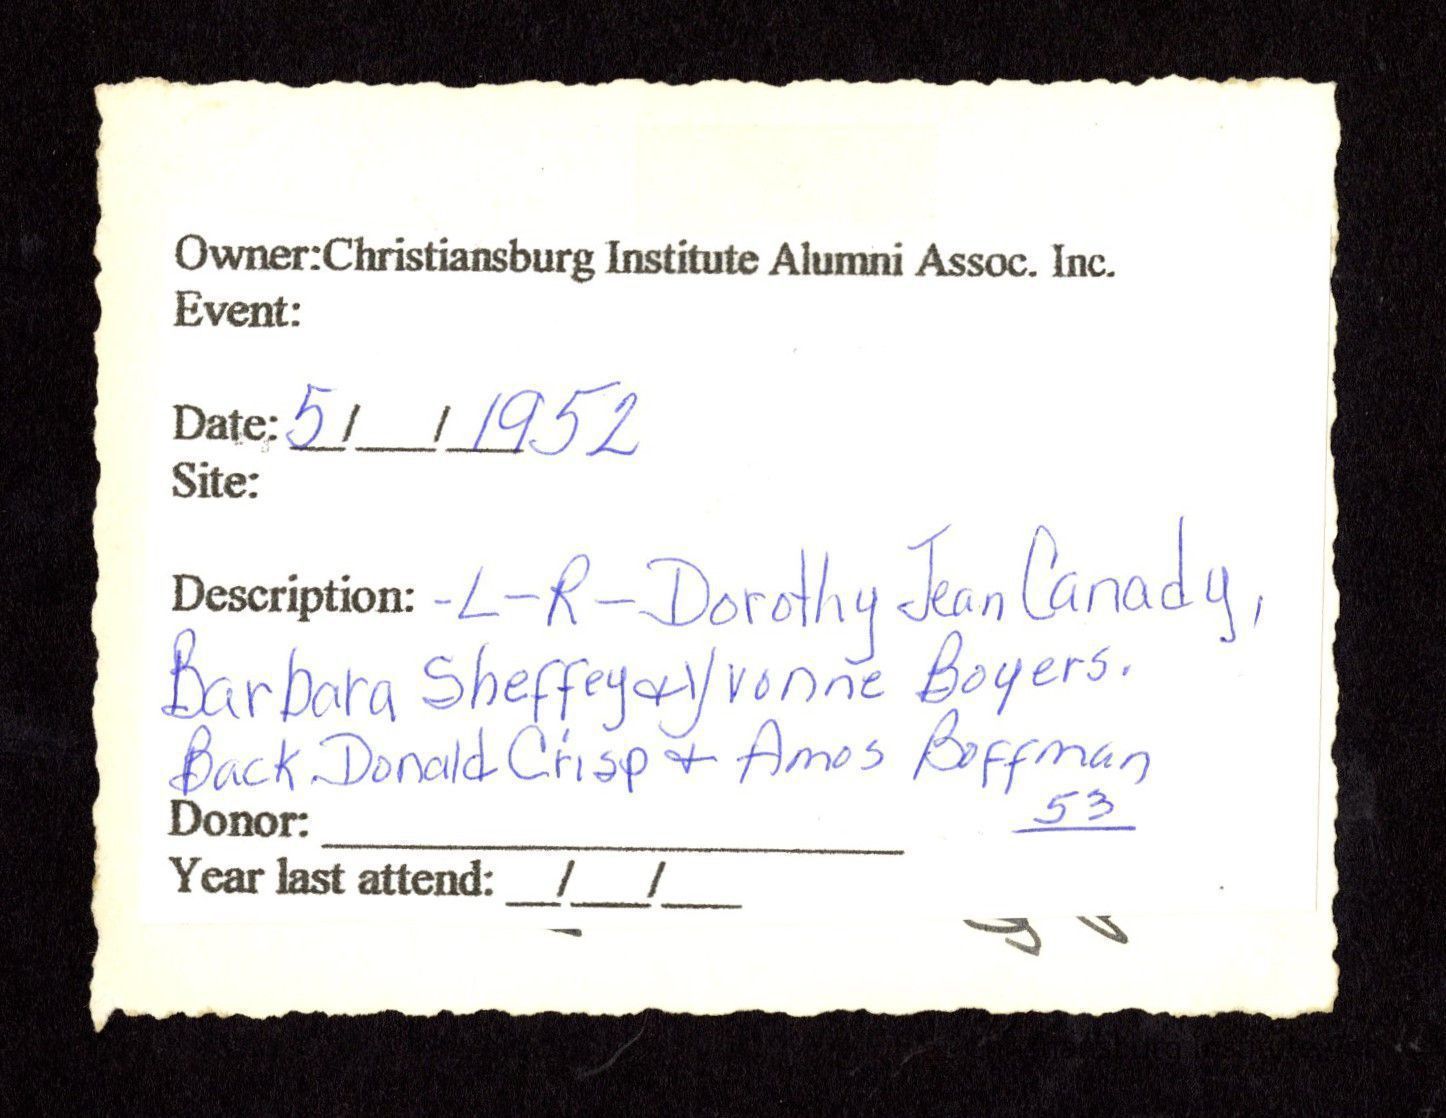 Owner:Christiansburg Institute Alumni Assoc. Inc.
Event:
Date: 5/__/1952
Site:
Description: -L-R-Dorothy Jean Canady,
Barbara Sheffey & Yvonne Boyers.
Back Donald Crisp & Amos Boffman
53
Donor:
Year last attend: __/__/__